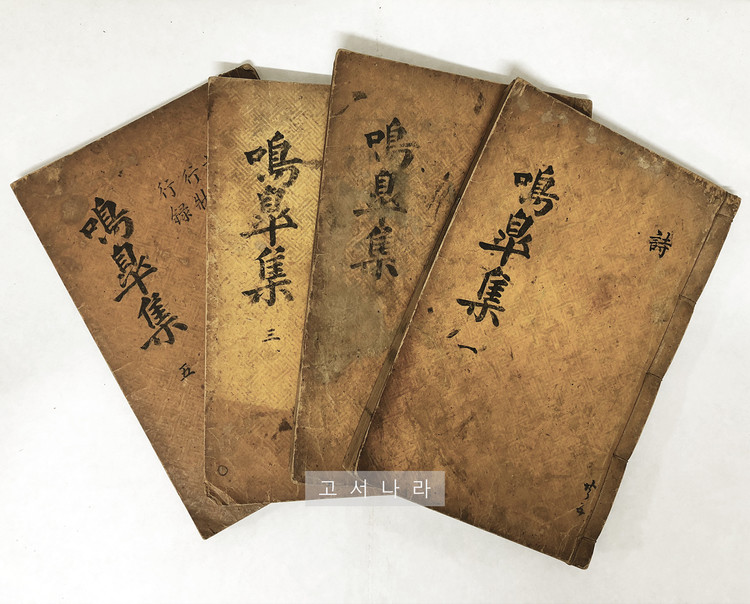 詩
鳴皐集 一
鳴皐集
鳴皐集 三
行錄
鳴皐集 五
고서나라